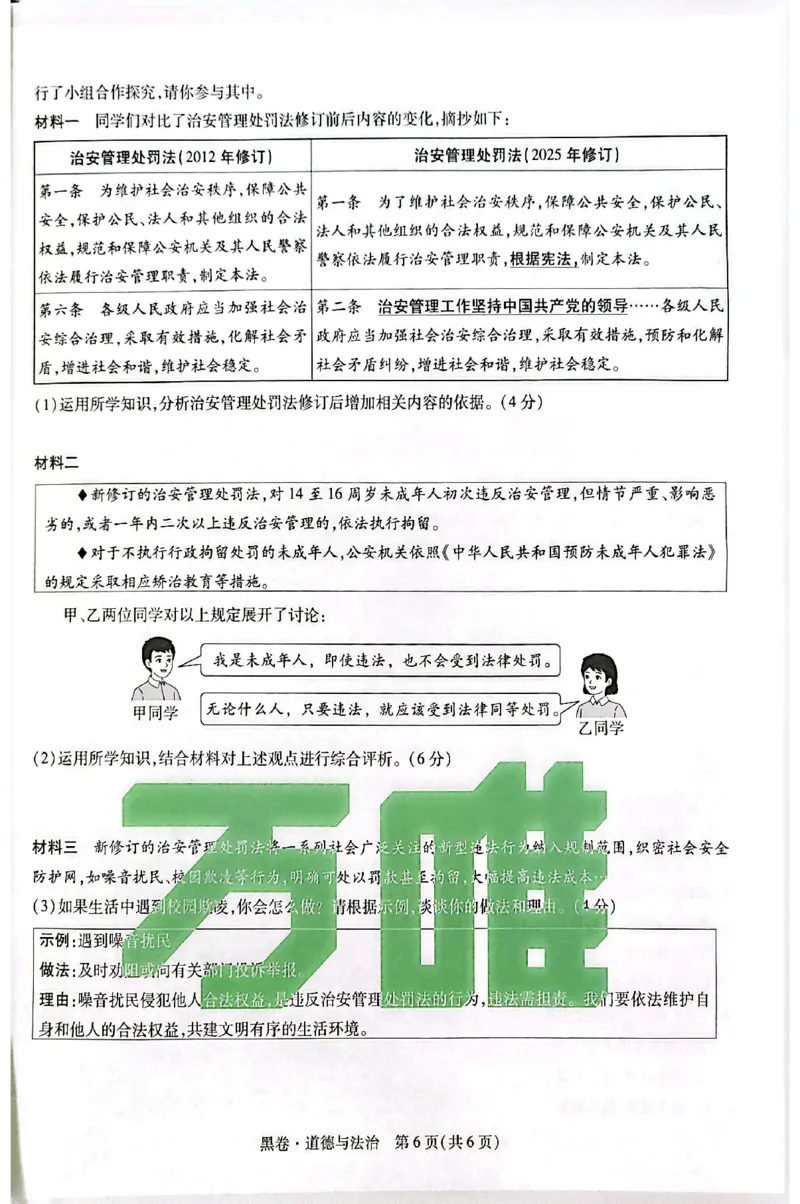 行了小组合作探究,请你参与其中。
材料一 同学们对比了治安管理处罚法修订前后内容的变化,摘抄如下:
治安管理处罚法(2012年修订)
治安管理处罚法(2025年修订)
第一条 为维护社会治安秩序,保障公共
安全,保护公民、法人和其他组织的合法
权益,规范和保障公安机关及其人民警察
依法履行治安管理职责,制定本法。
第一条 为了维护社会治安秩序,保障公共安全,保护公民、
法人和其他组织的合法权益,规范和保障公安机关及其人民
警察依法履行治安管理职责,根据宪法,制定本法。
第六条 各级人民政府应当加强社会治
安综合治理,采取有效措施,化解社会矛
盾,增进社会和谐,维护社会稳定。
第二条 治安管理工作坚持中国共产党的领导……各级人民
政府应当加强社会治安综合治理,采取有效措施,预防和化解
社会矛盾纠纷,增进社会和谐,维护社会稳定。
(1)运用所学知识,分析治安管理处罚法修订后增加相关内容的依据。(4分)
材料二
♦新修订的治安管理处罚法,对14至16周岁未成年人初次违反治安管理,但情节严重、影响恶
劣的,或者一年内二次以上违反治安管理的,依法执行拘留。
♦对于不执行行政拘留处罚的未成年人,公安机关依照《中华人民共和国预防未成年人犯罪法》
的规定采取相应矫治教育等措施。
甲、乙两位同学对以上规定展开了讨论:
我是未成年人,即使违法,也不会受到法律处罚。
甲同学
无论什么人,只要违法,就应该受到法律同等处罚。
乙同学
(2)运用所学知识,结合材料对上述观点进行综合评析。(6分)
材料三 新修订的治安管理处罚法将一系列社会广泛关注的新型违法行为纳入规制范围,织密社会安全
防护网,如噪音扰民、校园欺凌等行为,明确可处以罚款甚至拘留,大幅提高违法成本…
(3)如果生活中遇到校园欺凌,你会怎么做?请根据示例,谈谈你的做法和理由。(4分)
示例:遇到噪音扰民
做法:及时劝阻或向有关部门投诉举报。
理由:噪音扰民侵犯他人合法权益,是违反治安管理处罚法的行为,违法需担责。我们要依法维护自
身和他人的合法权益,共建文明有序的生活环境。
万唯
黑卷·道德与法治 第6页(共6页)